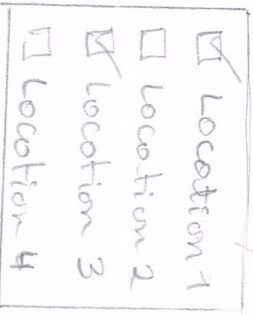 ☑ Location 1
☐ Location 2
☑ Location 3
☐ Location 4